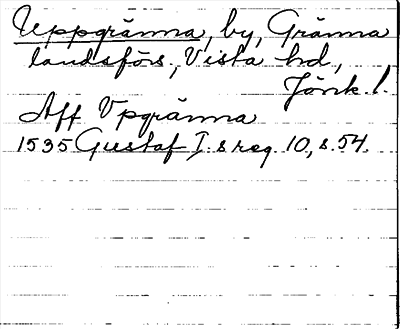 Uppgränna, by, Gränna
landsförs., Vista hd,
Jönk. l.
Aff Vpgränna
1535 Gustaf I:s reg. 10, s. 54.